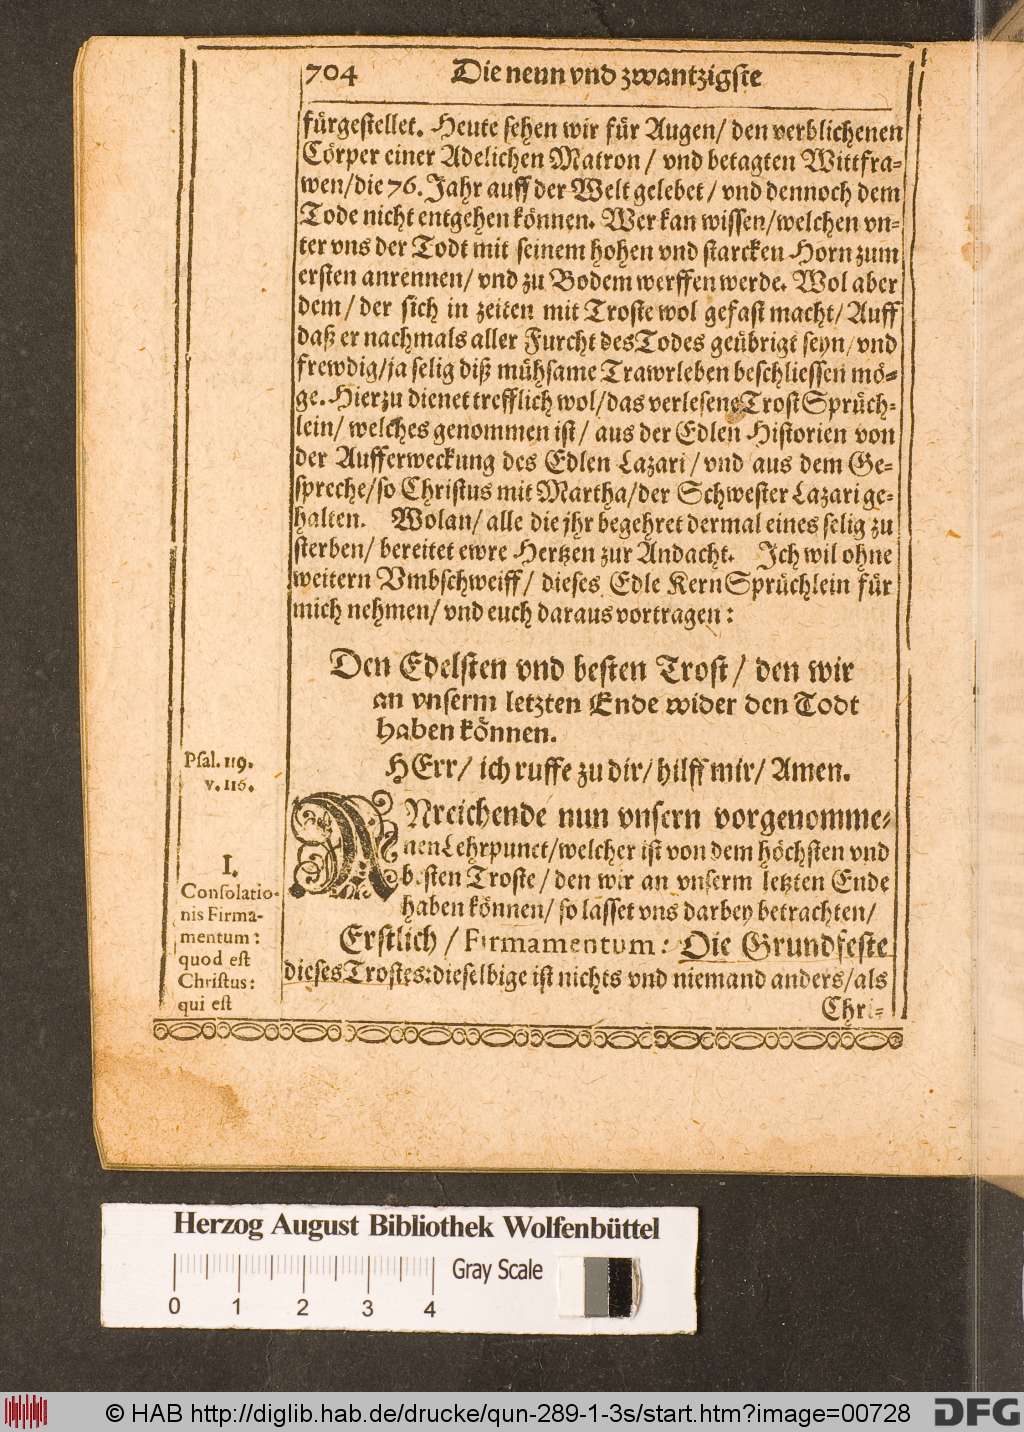 704 Die neun vnd zwantzigste
fürgestellet. Heute sehen wir für Augen/ den verblichenen
Cörper einer Adelichen Matron/ vnd betagten Wittfra-
wen/die 76. Jahr auff der Welt gelebet/ vnd dennoch dem
Tode nicht entgehen können. Wer kan wissen/welchen vn-
ter vns der Todt mit seinem hohen vnd starcken Horn zum
ersten anrennen/ vnd zu Bodem werffen werde. Wol aber
dem/ der sich in zeiten mit Troste wol gefast macht/ Auff
daß er nachmals aller Furcht des Todes geübrigt seyn/ vnd
frewdig/ja selig diß mühsame Trawrleben beschliessen mö-
ge. Hierzu dienet trefflich wol/das verlesene Trost Sprüch-
lein/ welches genommen ist/ aus der Edlen Historien von
der Aufferweckung des Edlen Lazari/ vnd aus dem Ge-
spreche/so Christus mit Martha/der Schwester Lazari ge-
halten. Wolan/ alle die jhr begehret dermal eines selig zu
sterben/ bereitet ewre Hertzen zur Andacht. Ich wil ohne
weitern Vmbschweiff/ dieses Edle KernSprüchlein für
mich nehmen/ vnd euch daraus vortragen:
Den Edelsten vnd besten Trost/ den wir
an vnserm letzten Ende wider den Todt
haben können.
Psal. 119.
v. 116.
HErr/ ich ruffe zu dir/ hilff mir/ Amen.
ANreichende nun vnsern vorgenomme-
nen Lehrpunct/welcher ist von dem höchsten vnd
besten Troste/ den wir an vnserm letzten Ende
haben können/ so lasset vns darbey betrachten/
I.
Consolatio-
nis Firma-
mentum:
quod est
Christus:
qui est
Erstlich/ Firmamentum: Die Grundfeste
dieses Trostes: dieselbige ist nichts vnd niemand anders/als
Chri-
Herzog August Bibliothek Wolfenbüttel
Gray Scale
0 1 2 3 4
© HAB http://diglib.hab.de/drucke/qun-289-1-3s/start.htm?image=00728 DFG